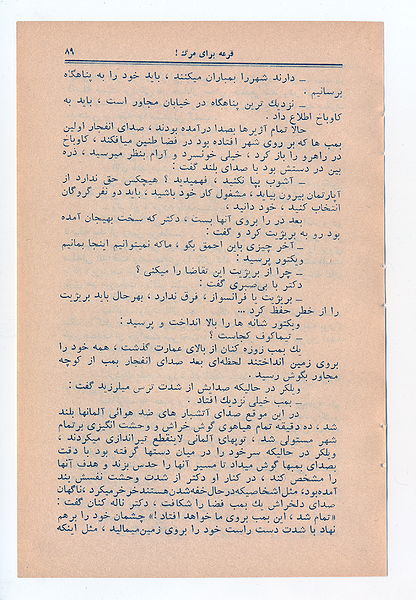 قرعه برای مرگ !
۸۹
ــ دارند شهررا بمباران میکنند ، باید خود را به پناهگاه
برسانیم .
ــ نزدیك ترین پناهگاه در خیابان مجاور است ، باید به
کاوباخ اطلاع داد .
حالا تمام آژیرها بصدا درآمده بودند ، صدای انفجار اولین
بمب ها که بر روی شهر افتاده بود در فضا طنین میافکند ، کاوباخ
در راهرو را باز کرد ، خیلی خونسرد و آرام بنظر میرسید ، ذره
بین در دستش بود با صدای بلند گفت :
ــ آشوب بپا نکنید ، فهمیدید ؟ هیچکس حق ندارد از
آپارتمان بیرون بیاید ، مشغول کار خود باشید ، باید دو نفر گروگان
انتخاب کنید ، خود دانید ،
بعد در را بروی آنها بست ، دکتر که سخت بهیجان آمده
بود رو به بریژیت کرد و گفت :
ــ آخر چیزی باین احمق بگو ، ماکه نمیتوانیم اینجا بمانیم
ویکتور پرسید :
ــ چرا از بریژیت این تقاضا را میکنی ؟
دکتر با بی‌صبری گفت :
ــ بریژیت با فرانسواز ، فرق ندارد ، بهرحال باید بریژیت
را از خطر حفظ کرد ...
ویکتور شانه ها را بالا انداخت و پرسید :
ــ تیماکوف کجاست ؟
یك بمب زوزه کنان از بالای عمارت گذشت ، همه خود را
بروی زمین انداختند لحظه‌ای بعد صدای انفجار بمب از کوچه
مجاور بگوش رسید .
ویلکر در حالیکه صدایش از شدت ترس میلرزید گفت :
ــ بمب خیلی نزدیك افتاد .
در این موقع صدای آتشبار های ضد هوائی آلمانها بلند
شد ، ده دقیقه تمام هیاهوی گوش خراش و وحشت انگیزی برتمام
شهر مستولی شد ، توپهای آلمانی لاینقطع تیراندازی میکردند ،
ویلکر در حالیکه سرخود را در میان دستها گرفته بود با دقت
بصدای بمبها گوش میداد تا مسیر آنها را حدس بزند و هدف آنها
را مشخص کند ، در کنار او دکتر از شدت وحشت نفسش بند
آمده‌بود، مثل اشخاصیکه درحال خفه‌شدن‌هستند خرخر‌میکرد، ناگهان
صدای دلخراش یك بمب فضا را شکافت ، دکتر ناله کنان گفت :
«تمام شد ، این بمب بروی ما خواهد افتاد !» چشمان خود را برهم
نهاد با شدت دست راست خود را بروی زمین‌میمالید ، مثل اینکه